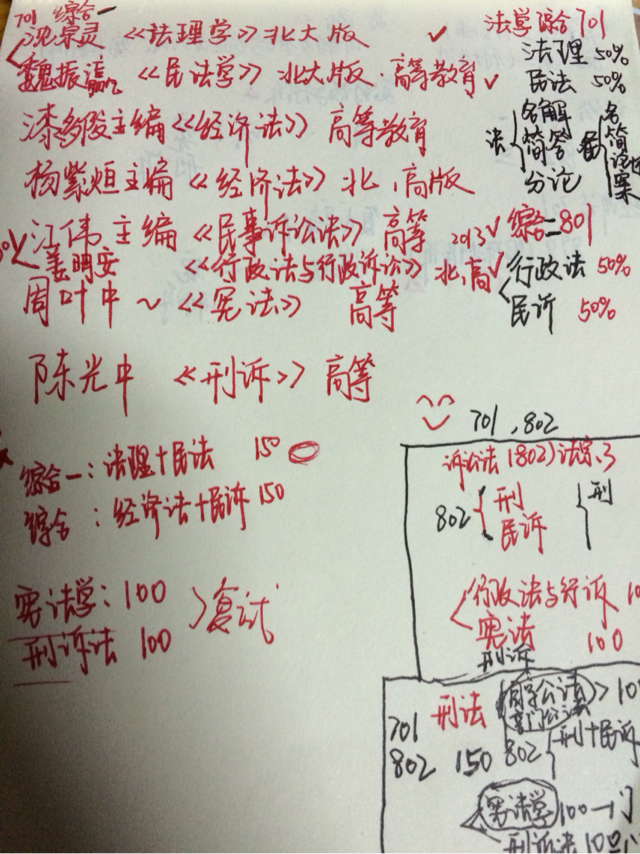 701 综合一
沈宗灵 《法理学》北大版 ✓
魏振瀛 《民法学》北大版 高等教育 ✓
漆多俊主编《经济法》高等教育
杨紫烜主编《经济法》北、高版
江伟主编《民事诉讼法》高等 2013 ✓
姜明安 《行政法与行政诉讼》北、高 ✓
周叶中 ~《宪法》 高等
陈光中 《刑诉》高等
综合一:法理+民法 150
综合 :经济法+民诉 150
宪法学:100
刑诉法 100
复试
法学综合701
法理 50%
民法 50%
法 名解
简答
分论
名
简
案
综合二801
行政法 50%
民诉 50%
701、802
诉讼法(802)法宗、3
802 刑
民诉
刑
行政法与行诉 10
宪法 100
刑诉
701 刑法
802 150 802 刑+民诉
宪法学 100一门
刑诉法 100